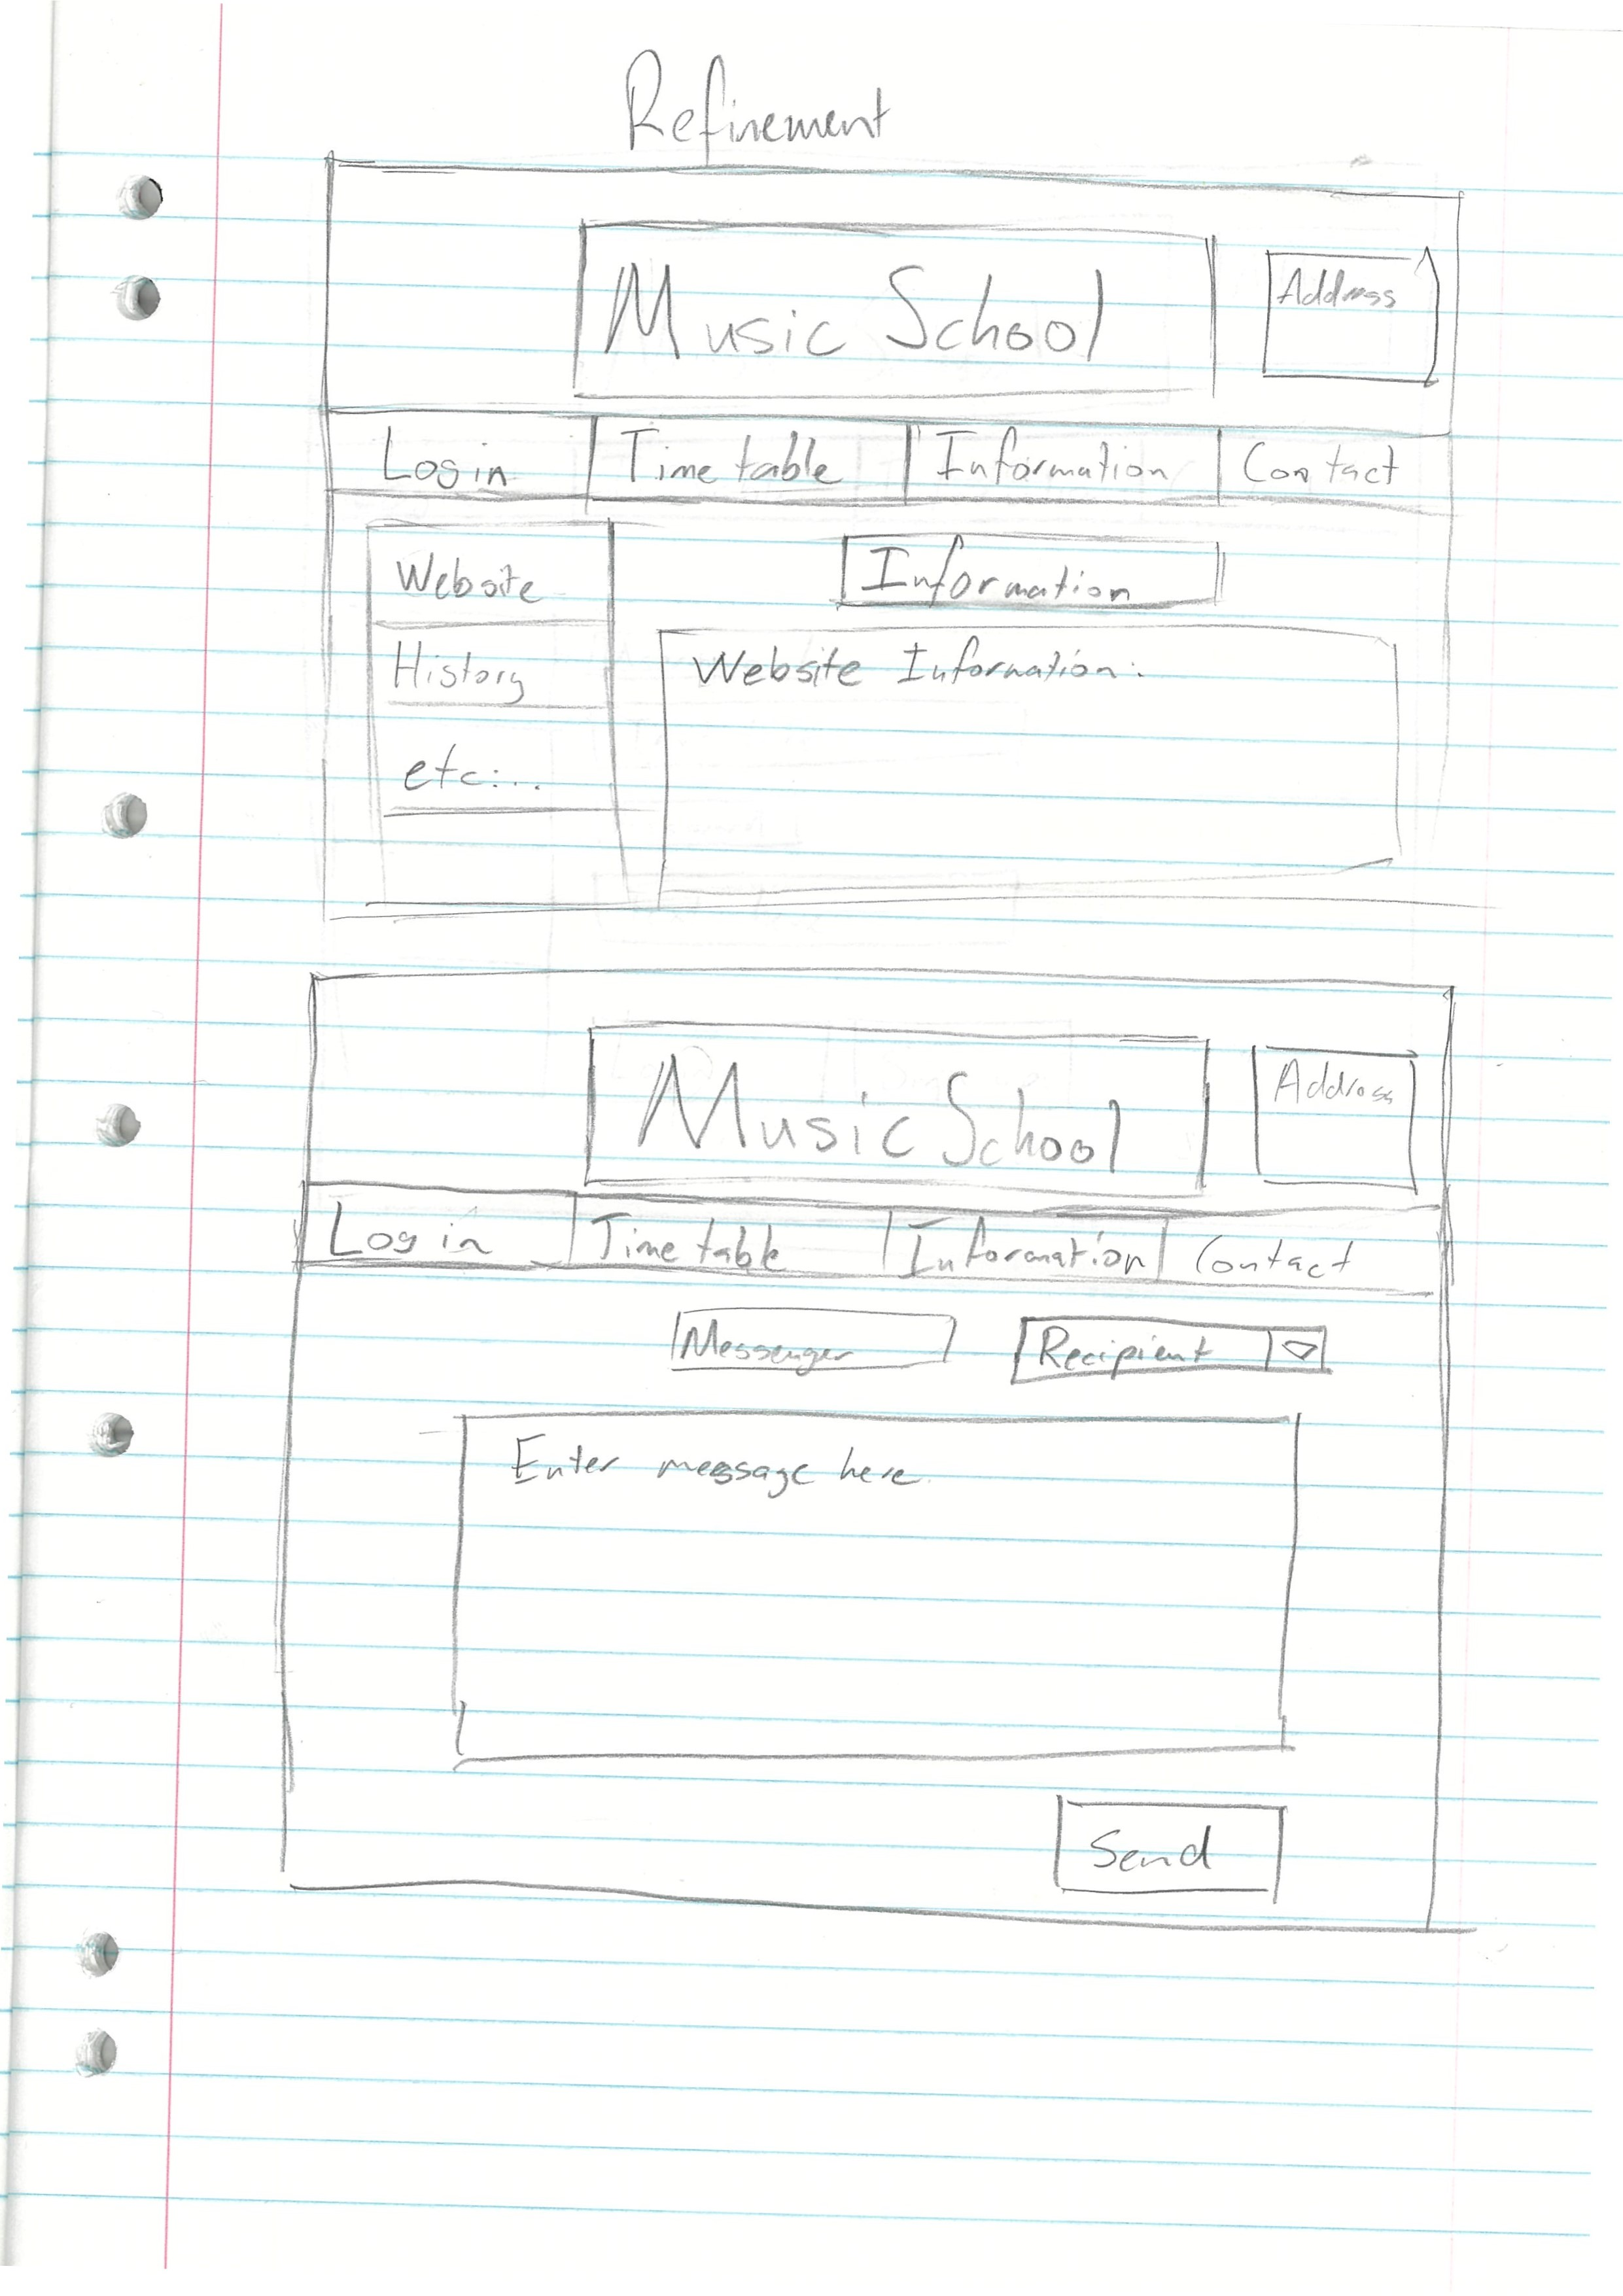 Refinement
Music School
Address
Login Timetable Information Contact
Website
Information
History
Website Information:
etc...
Music School
Address
Login Timetable Information Contact
Messenger
Recipient
Enter message here
Send